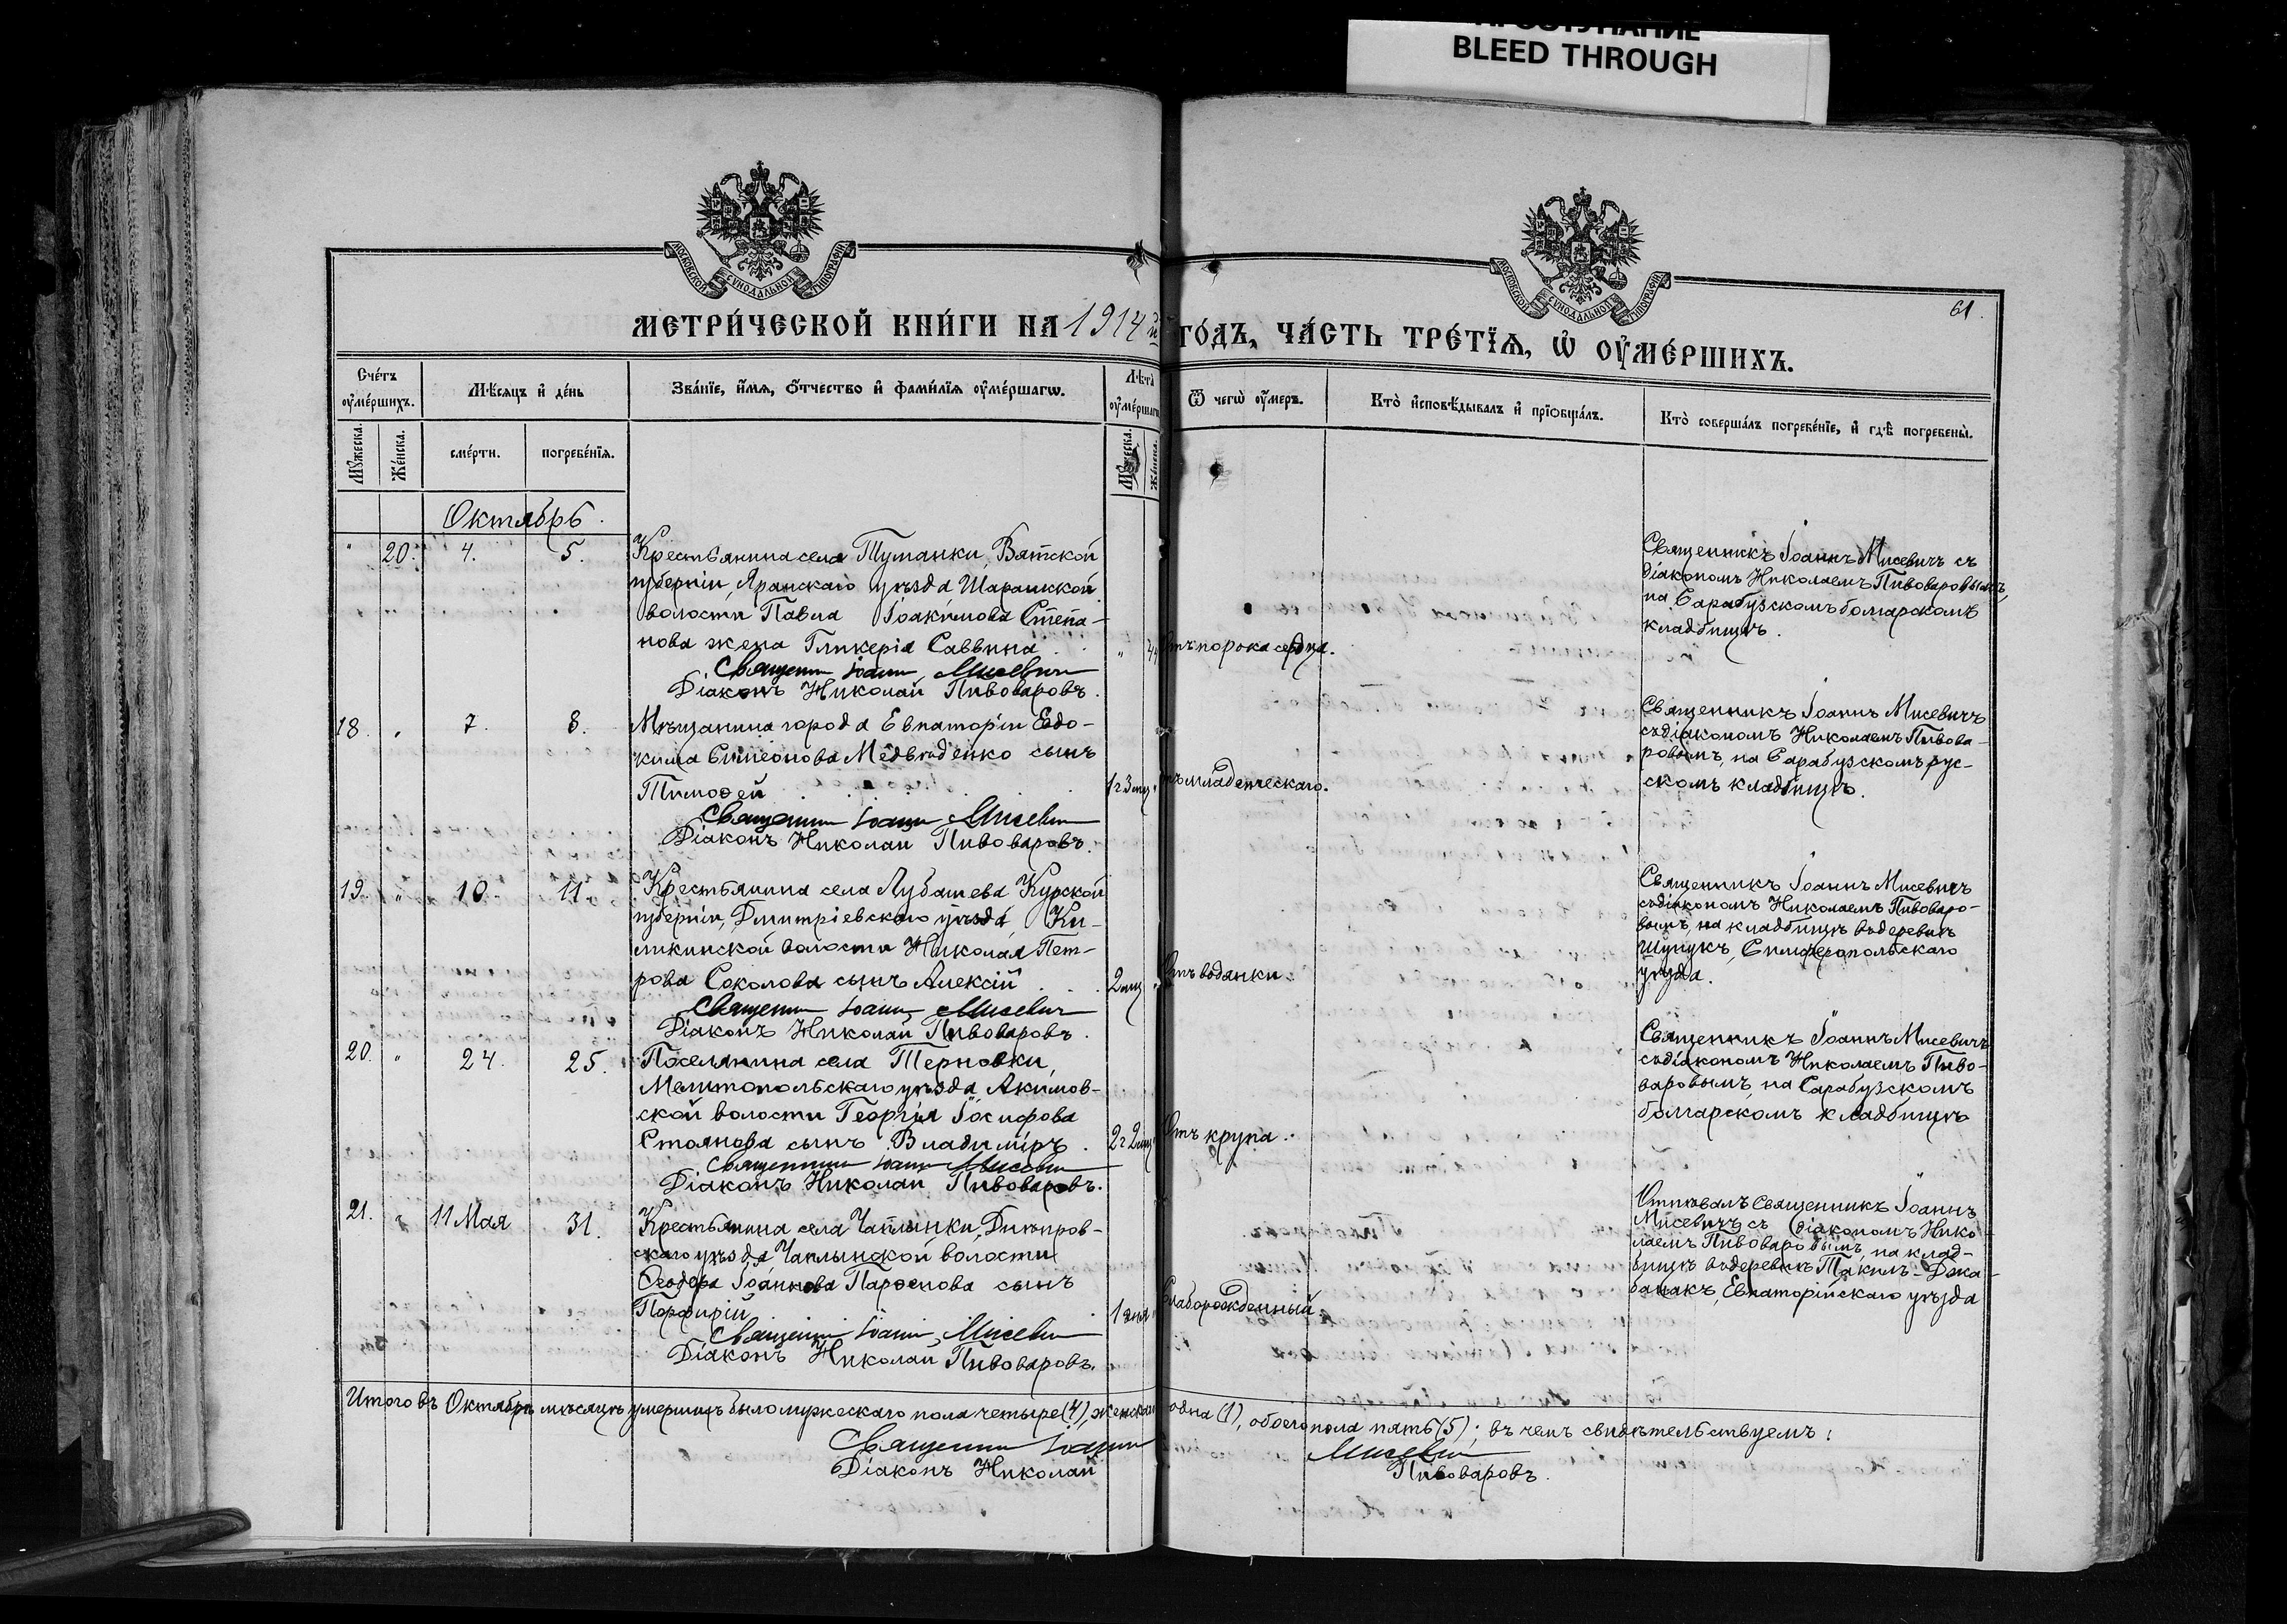 ПРОСТУПАНИЕ
BLEED THROUGH
МОСКОВСКОЙ СУНОДАЛЬНОЙ ТИПОГРАФІИ
МОСКОВСКОЙ СУНОДАЛЬНОЙ ТИПОГРАФІИ
61.
МЕТРИ́ЧЕСКОЙ КНИ́ГИ НА 1914й ГО́ДЪ, ЧА́СТЬ ТРЕ́ТЇѦ, Ѡ҆ ОУ҆МЕ́РШИХЪ.
Сче́тъ оу҆ме́ршихъ.
Мѣ́сяцъ и҆ де́нь
Зва́нїе, и҆́мя, ѻ҆́тчество и҆ фами́лїя оу҆ме́ршагѡ.
Лѣ́та оу҆ме́ршагѡ
Ѿ чегѡ̀ оу҆́меръ.
Кто̀ и҆сповѣ́дывалъ и҆ прїобща́лъ.
Кто̀ соверша́лъ погребе́нїе, и҆ гдѣ̀ погребены̀.
Мꙋ́жеска.
Же́нска.
сме́рти.
погребе́нїя.
Мꙋ́жеска.
Же́нска.
Октябрь.
" 20. 4. 5.
Крестьянина села Туманки, Вятской
губерніи, Яранскаго уѣзда, Шарангской
волости Павла Іоакимова Степа-
нова жена Гликерія Саввина
Священникъ Іоаннъ Мисевичъ
Діаконъ Николай Пивоваровъ.
Отъ порока сердца.
Священникъ Іоаннъ Мисевичъ съ
діакономъ Николаемъ Пивоваровымъ,
на Сарабузскомъ болгарскомъ
кладбищѣ.
18. " 7. 8.
Мѣщанина города Евпаторіи Евдо-
кима Симеонова Медвѣденко сынъ
Тимоѳей
Священникъ Іоаннъ Мисевичъ
Діаконъ Николай Пивоваровъ.
1 г 3 мц
Отъ младенческаго.
Священникъ Іоаннъ Мисевичъ
съ діакономъ Николаемъ Пивова-
ровымъ, на Сарабузскомъ рус-
скомъ кладбищѣ.
19. " 10. 11.
Крестьянина села Лубашева Курской
губерніи, Дмитріевскаго уѣзда,
волости Николая Пет-
рова Соколова сынъ Алексій
Священникъ Іоаннъ Мисевичъ
Діаконъ Николай Пивоваровъ.
2 мц
Отъ водянки
Священникъ Іоаннъ Мисевичъ
съ діакономъ Николаемъ Пивоваро-
вымъ, на кладбищѣ въ деревнѣ
Симферопольскаго
уѣзда.
20. " 24. 25.
Поселянина села Терновки,
Мелитопольскаго уѣзда, Акимов-
ской волости Георгія Іосифова
Стоянова сынъ Владиміръ
Священникъ Іоаннъ Мисевичъ
Діаконъ Николай Пивоваровъ.
2 г 2 мц
Отъ крупа.
Священникъ Іоаннъ Мисевичъ
съ діакономъ Николаемъ Пиво-
варовымъ, на Сарабузскомъ
болгарскомъ кладбищѣ
21. " 11 Мая 31.
Крестьянина села Чаплинки, Днѣпров-
скаго уѣзда, Чаплынской волости
Ѳеодора Іоаннова сынъ
Порфирій
Священникъ Іоаннъ Мисевичъ
Діаконъ Николай Пивоваровъ.
1 дня
Слаборожденный
Отпѣвалъ Священникъ Іоаннъ
Мисевичъ съ діакономъ Нико-
лаемъ Пивоваровымъ, на клад-
бищѣ въ деревнѣ Такилъ-Джа-
банакъ, Евпаторійскаго уѣзда
Итого въ Октябрѣ мѣсяцѣ умершихъ было мужескаго пола четыре (4), женскаго одна (1), обоего пола пять (5); въ чемъ свидѣтельствуемъ:
Священникъ Іоаннъ Мисевичъ
Діаконъ Николай Пивоваровъ.